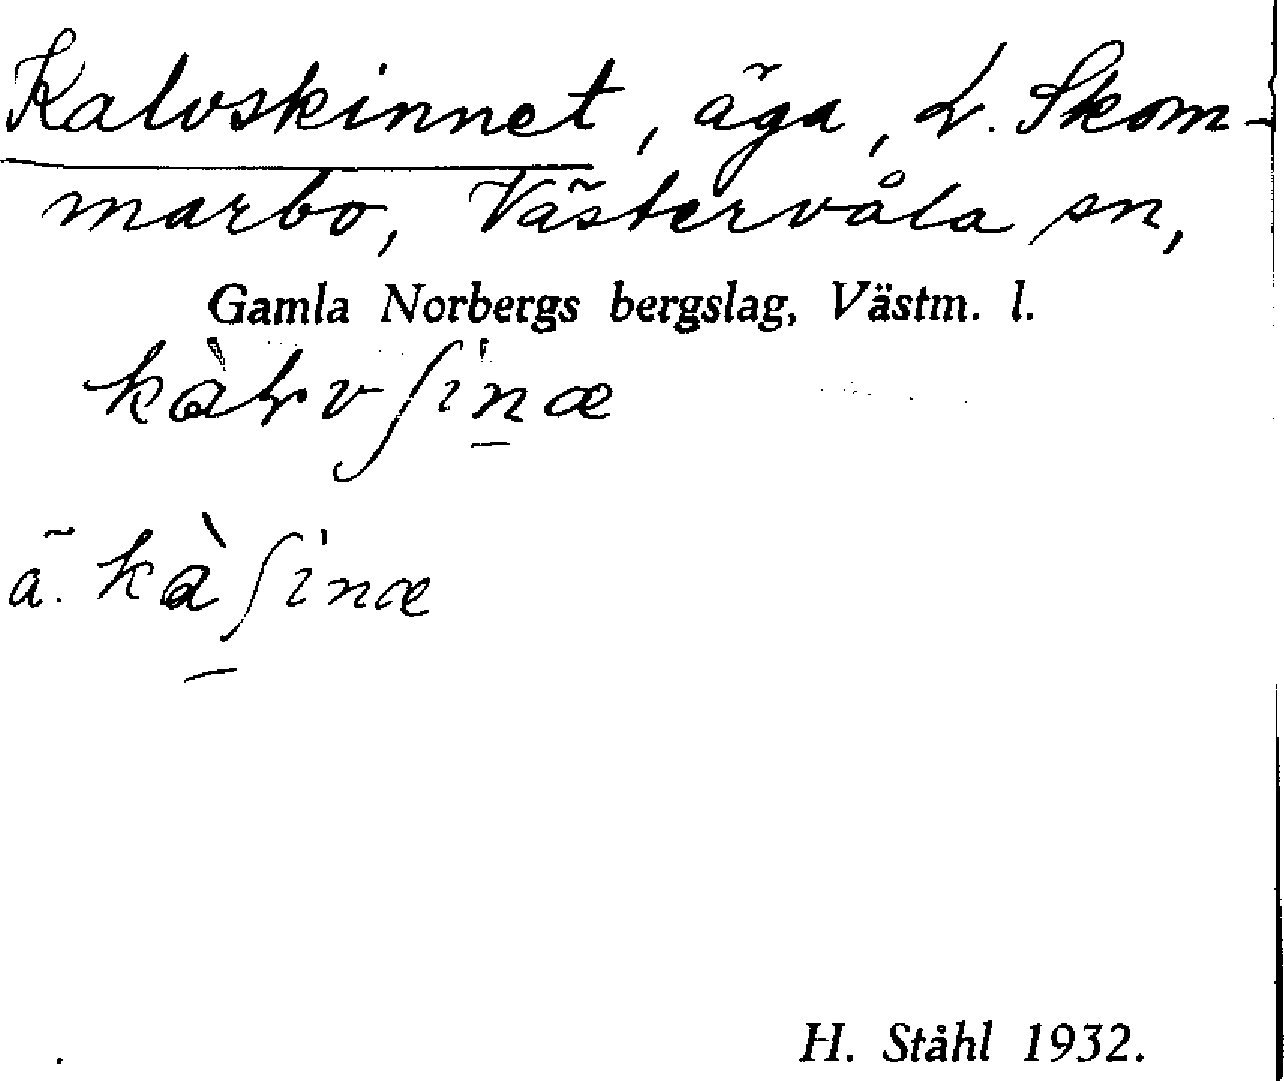 Kalvskinnet, äga, L. Skom-
marbo, Västervåla sn,
Gamla Norbergs bergslag, Västm. l.
ä.
H. Ståhl 1932.